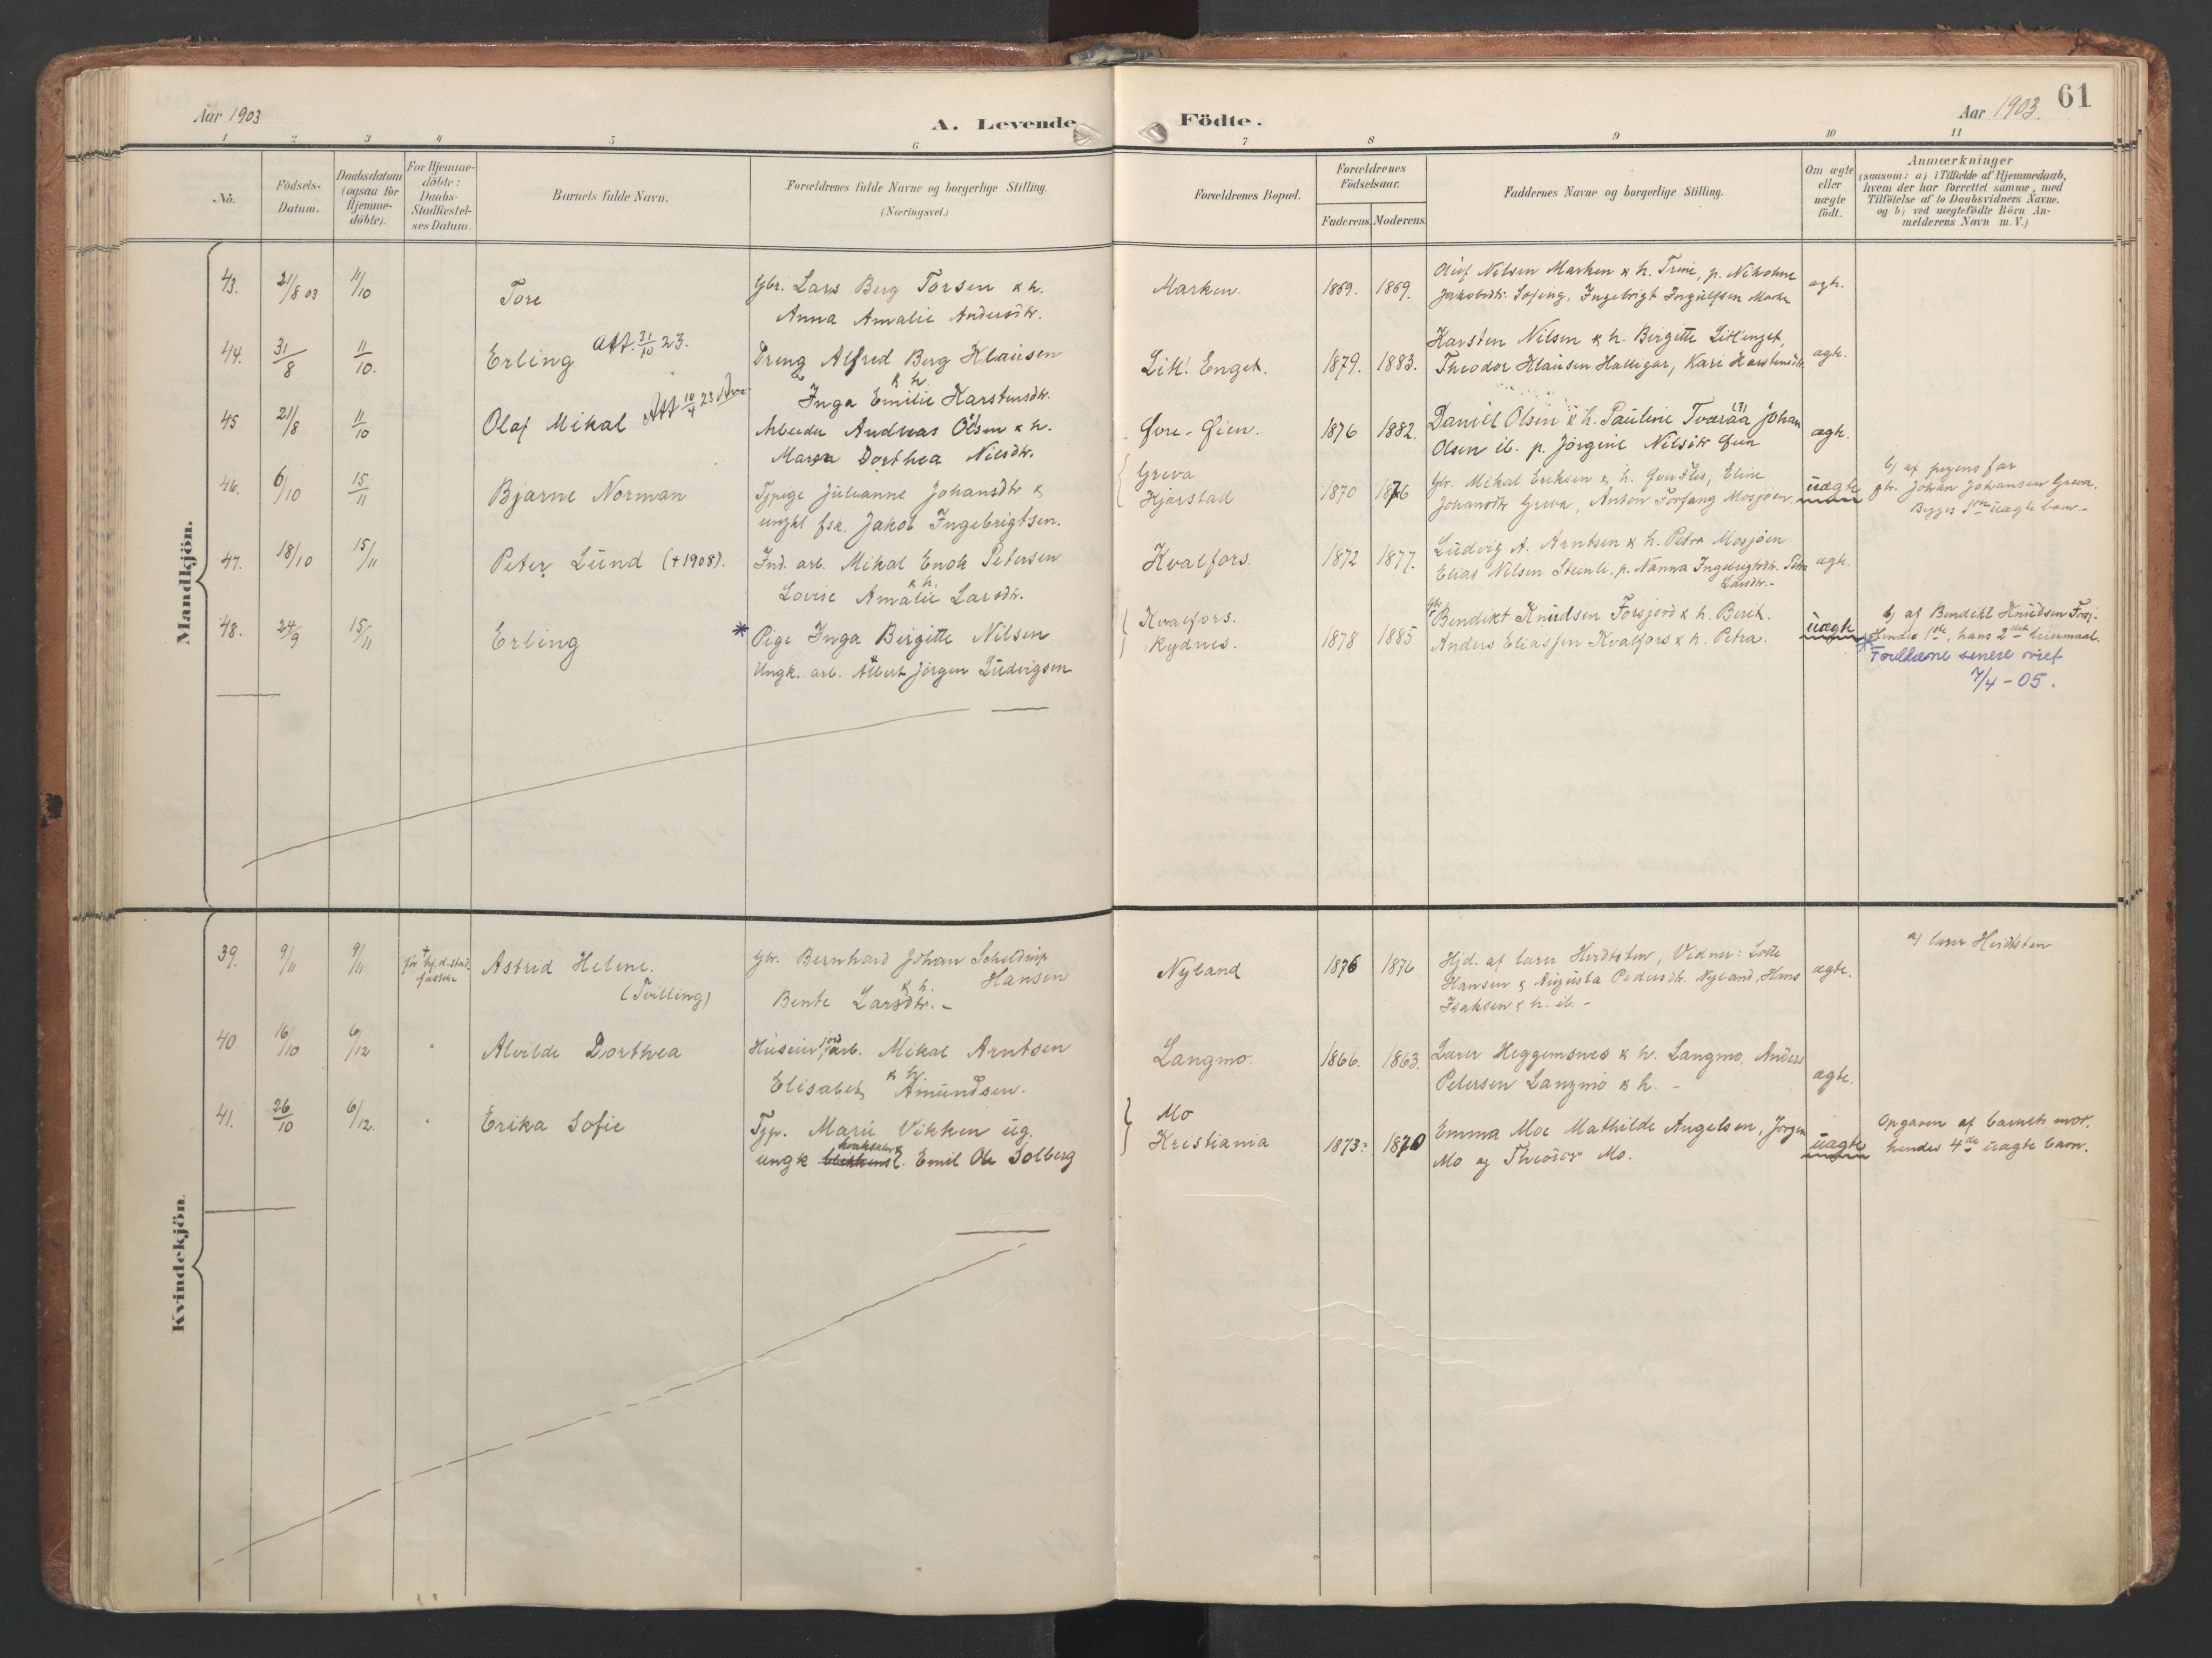 Aar 1903
A. Levende
Födte.
Aar 1903.
61
1 2 3 4 5 6 7 8 9 10 11
No.
Födsels-
Datum.
Daabsdatum
(ogsaa for
Hjemme-
döbte).
For Hjemme-
döbte:
Daabs-
Stadfæstel-
ses Datum.
Barnets fulde Navn.
Forældrenes fulde Navne og borgerlige Stilling.
(Næringsvei.)
Forældrenes Bopæl.
Forældrenes
Födselsaar.
Faderens. Moderens.
Faddernes Navne og borgerlige Stilling.
Om ægte
eller
uægte
födt.
Anmærkninger
(saasom: a) i Tilfælde af Hjemmedaab,
hvem der har forrettet samme, med
Tilföielse af to Daabsvidners Navne,
og b) ved uægtefödte Börn An-
melderens Navn m. V.)
Mandkjön.
43. 21/8 03 11/10 Tore
Gbr. Lars Berg Torsen & h.
Anna Amalie Andersdtr.
Marken. 1869. 1869.
Oluf Nilsen Marken & h. Trine, p. Nikoline
Jakobsdtr. Ingebrigt Ingulfsen
ægte.
44. 31/8 11/10. Erling Att. 31/10 23.
Dreng Alfred Berg Klausen
& h.
Inga Emilie Karstensdtr.
Litl. Enget. 1879. 1883.
Karsten Nilsen & h. Birgitte Litlenget,
Theodor Klausen Kari Karstensdtr.
ægte.
45 21/8 11/10 Olaf Mikal Att 10/4 23
Arbeider Andreas Olsen & h.
Dorthea Nilsdtr.
Övre-Öien. 1876 1882.
Daniel Olsen & h. Pauline Tveraa Johan
Olsen ib. p. Jörgine Nilsdtr Öien
ægte.
46. 6/10 15/11 Bjarne Norman
Tjpige Julianne Johansdtr &
ungkl fsk. Jakob Ingebrigtsen.
Greva
Kjærstad
1870 1876
Gbr. Mikal Eriksen & h. Eline
Johansdtr Greva, Anton Forfang Mosjöen.
uægte
b) af pigens far
gbr. Johan Johansen Greva.
Begges 1ste uægte barn-
47. 18/10 15/11 Peter Lund (+1908).
Ind. arb. Mikal Enok Petersen
& h.
Lovise Amalie Larsdtr.
Kvalfors. 1872 1877.
Ludvig A. Arntsen & h. Petra Mosjöen
Elias Nilsen Steenli, p. Nanna Ingebrigtsdtr. Petra
Larsdtr.-
ægte.
48. 24/9 15/11 Erling
* Pige Inga Birgitte Nilsen
Ungk. arb. Albert Jörgen Ludvigsen
Kvalfors.
Rydnes.
1878 1885
Gbr. Bendikt Knudsen Forsjord & h. Berit.
Anders Eliassen Kvalfors & h. Petra.
uægte
b) af Bendikt Knudsen Forsj.
Hendes 1ste, hans 2det leiermaal.
* Foreldrene senere viet
7/4-05.
Kvindekjön.
39. 9/11 9/11 + för hj.d. stad-
fæstelse
Astrid Helene.
(Tvilling)
Gbr. Bernhard Johan Scheldrup
Hansen
& h.
Bente Larsdtr.-
Nyland 1876 1876
Hjd. af lærer Herdtsten, Vidner: Lotte
Hansen & Augusta Pedersdtr. Nyland, Hans
Isaksen & h. ib.-
ægte.
a) lærer Herdtsten
40. 16/10 6/12 " Alvilde Dorthea
Husmd, jordarb. Mikal Arntsen
& h.
Elisabet Amundsen.
Langmo. 1866. 1863.
Lærer Heggemsnes & h. Langmo, Anders
Petersen Langmo & h. -
ægte.
41. 26/10 6/12. " Erika Sofie
Tjp. Marie Vikken ug.
ungk Emil Ole Solberg
Mo
Kristiania
1873: 1870
Emma Moe Mathilde Angelsen, Jörgen
Mo og Theodor Mo.
uægte
Opgaven af barnets mor.
hendes 4de uægte barn.